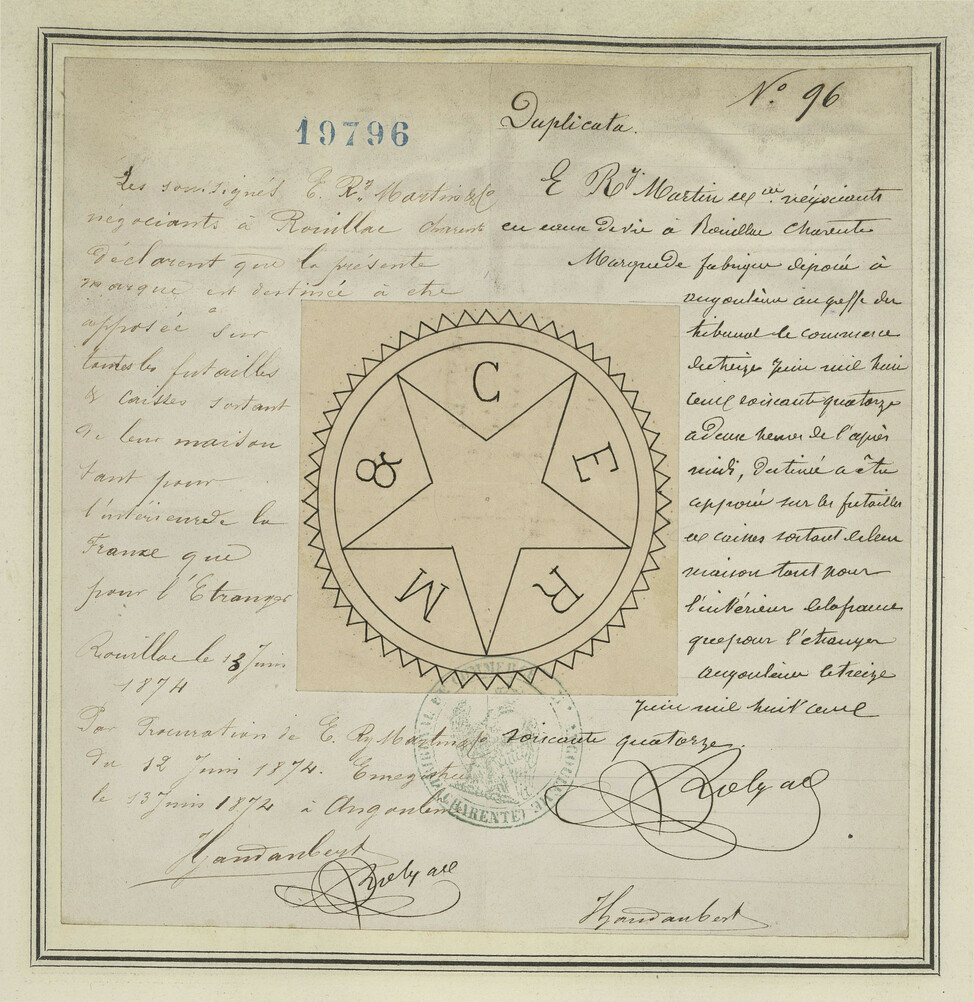 N.° 96
19796
Duplicata.
Les soussignés E. Ry. Martin & Co
négociants à Rouillac charente
déclarent que la présente
marque est destinée à etre
apposée sur
toutes les futailles
& caisses sortant
de leur maison
tant pour
l'intérieur de la
France que
pour l'Etranger
Rouillac le 13 Juin
1874
Par Procuration de E. Ry Martin & Co
du 12 Juin 1874. Enregistrée
le 13 Juin 1874 à Angoulême
E Ry Martin et Cie négociants
en eaux de vie à Rouillac Charente
Marque de fabrique déposée à
angoulême au greffe du
tribunal de commerce
le treize Juin mil huit
cent soixante quatorze
a deux heures de l'après
midi, destinée a être
apposée sur les futailles
et caisses sortant de leur
maison tant pour
l'intérieur de la france
que pour l'etranger
angoulême le treize
Juin mil huit cent
soixante quatorze.
C
E
R
M
&
TRIBUNAL DE COMMERCE
(CHARENTE)